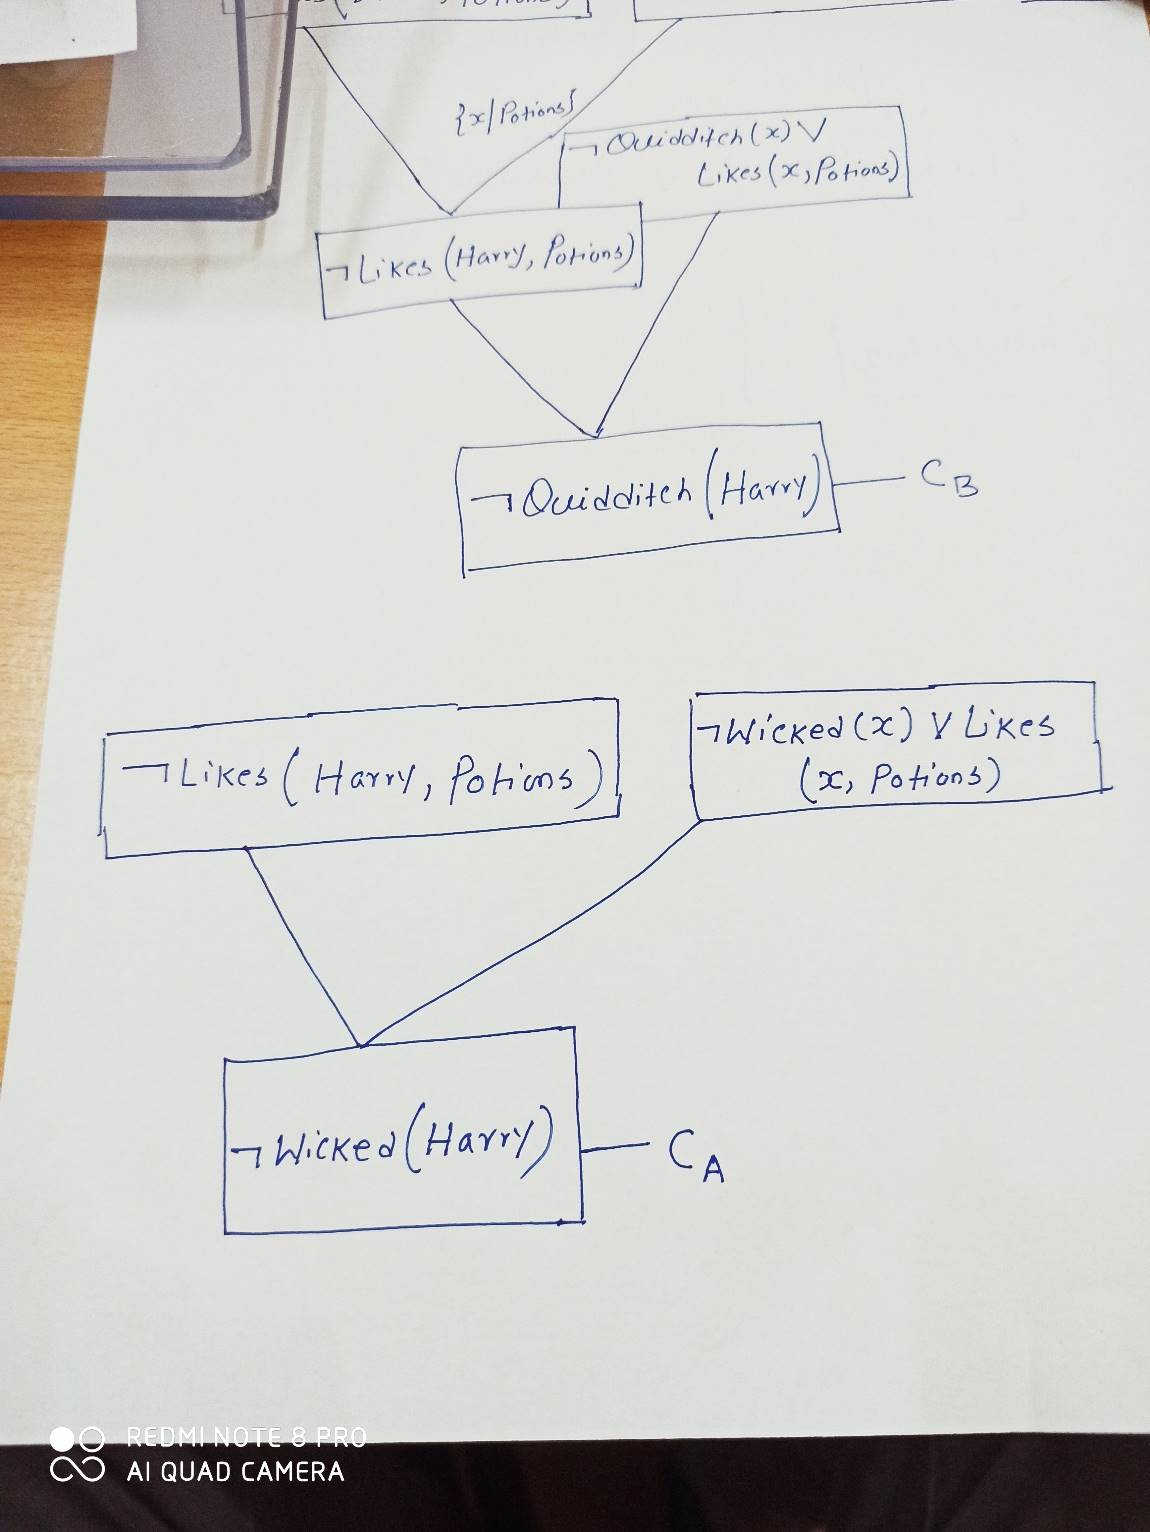 {x/Potions}
¬Quidditch(x) V
Likes(x, Potions)
¬Likes (Harry, Potions)
¬Quidditch (Harry)
CB
¬Likes (Harry, Potions)
¬Wicked (x) V Likes
(x, Potions)
¬Wicked (Harry)
CA
REDMI NOTE 8 PRO
AI QUAD CAMERA